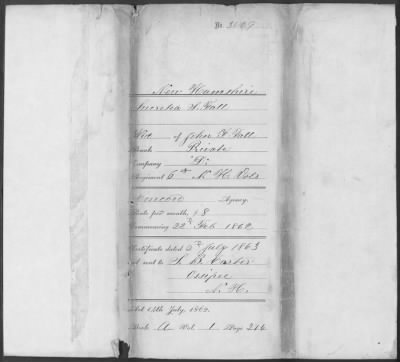 No.
New Hamshire
Lucretia S. Hall
Wid. of John F. Hall
Rank Private
Company "D"
Regiment 6th N. H. Vols
Concord Agency.
Rate per month, $8
Commencing 22nd Feb 1862
Certificate dated 6th July 1863
and sent to
Ossipee
N. H.
Act 14th July, 1862.
Book A Vol. 1 Page 246